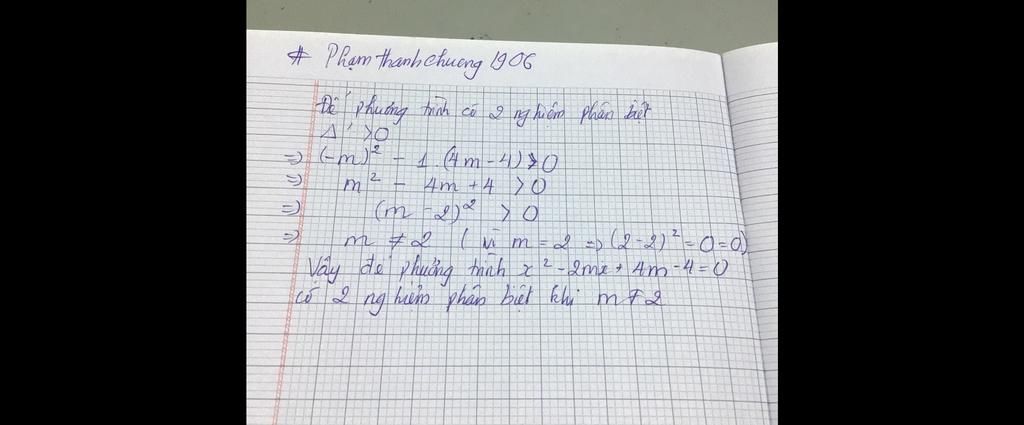 # Phạm thanh chương 1906
Để phương trình có 2 nghiệm phân biệt
Δ' > 0
=> (-m)² - 1.(4m-4) > 0
=> m² - 4m + 4 > 0
=> (m - 2)² > 0
=> m ≠ 2 ( vì m = 2 => (2-2)² = 0 = 0)
Vậy để phương trình x² - 2mx + 4m - 4 = 0
có 2 nghiệm phân biệt khi m ≠ 2